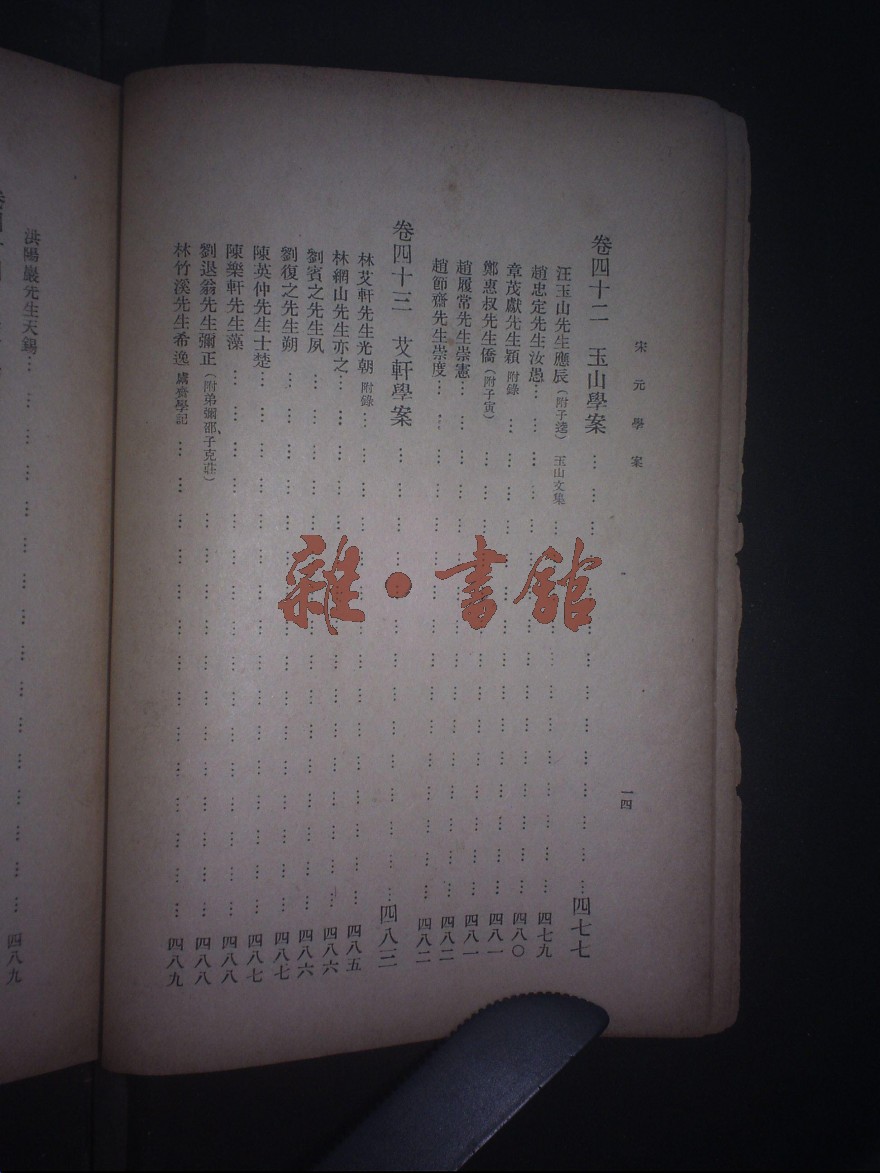 宋元學案
一四
卷四十二 玉山學案 四七七
汪玉山先生應辰(附子逵) 玉山文集
趙忠定先生汝愚 四七九
章茂獻先生穎 附錄 四八〇
鄭惠叔先生僑(附子寅) 四八一
趙履常先生崇憲 四八一
趙節齋先生崇度 四八二
卷四十三 艾軒學案 四八三
林艾軒先生光朝 附錄 四八五
林網山先生亦之 四八六
劉賓之先生夙 四八六
劉復之先生朔 四八七
陳英仲先生士楚 四八七
陳樂軒先生藻 四八八
劉退翁先生彌正(附弟彌邵、子克莊) 四八八
林竹溪先生希逸 鬳齋學記 四八九
洪陽巖先生天錫 四八九
雜·書館